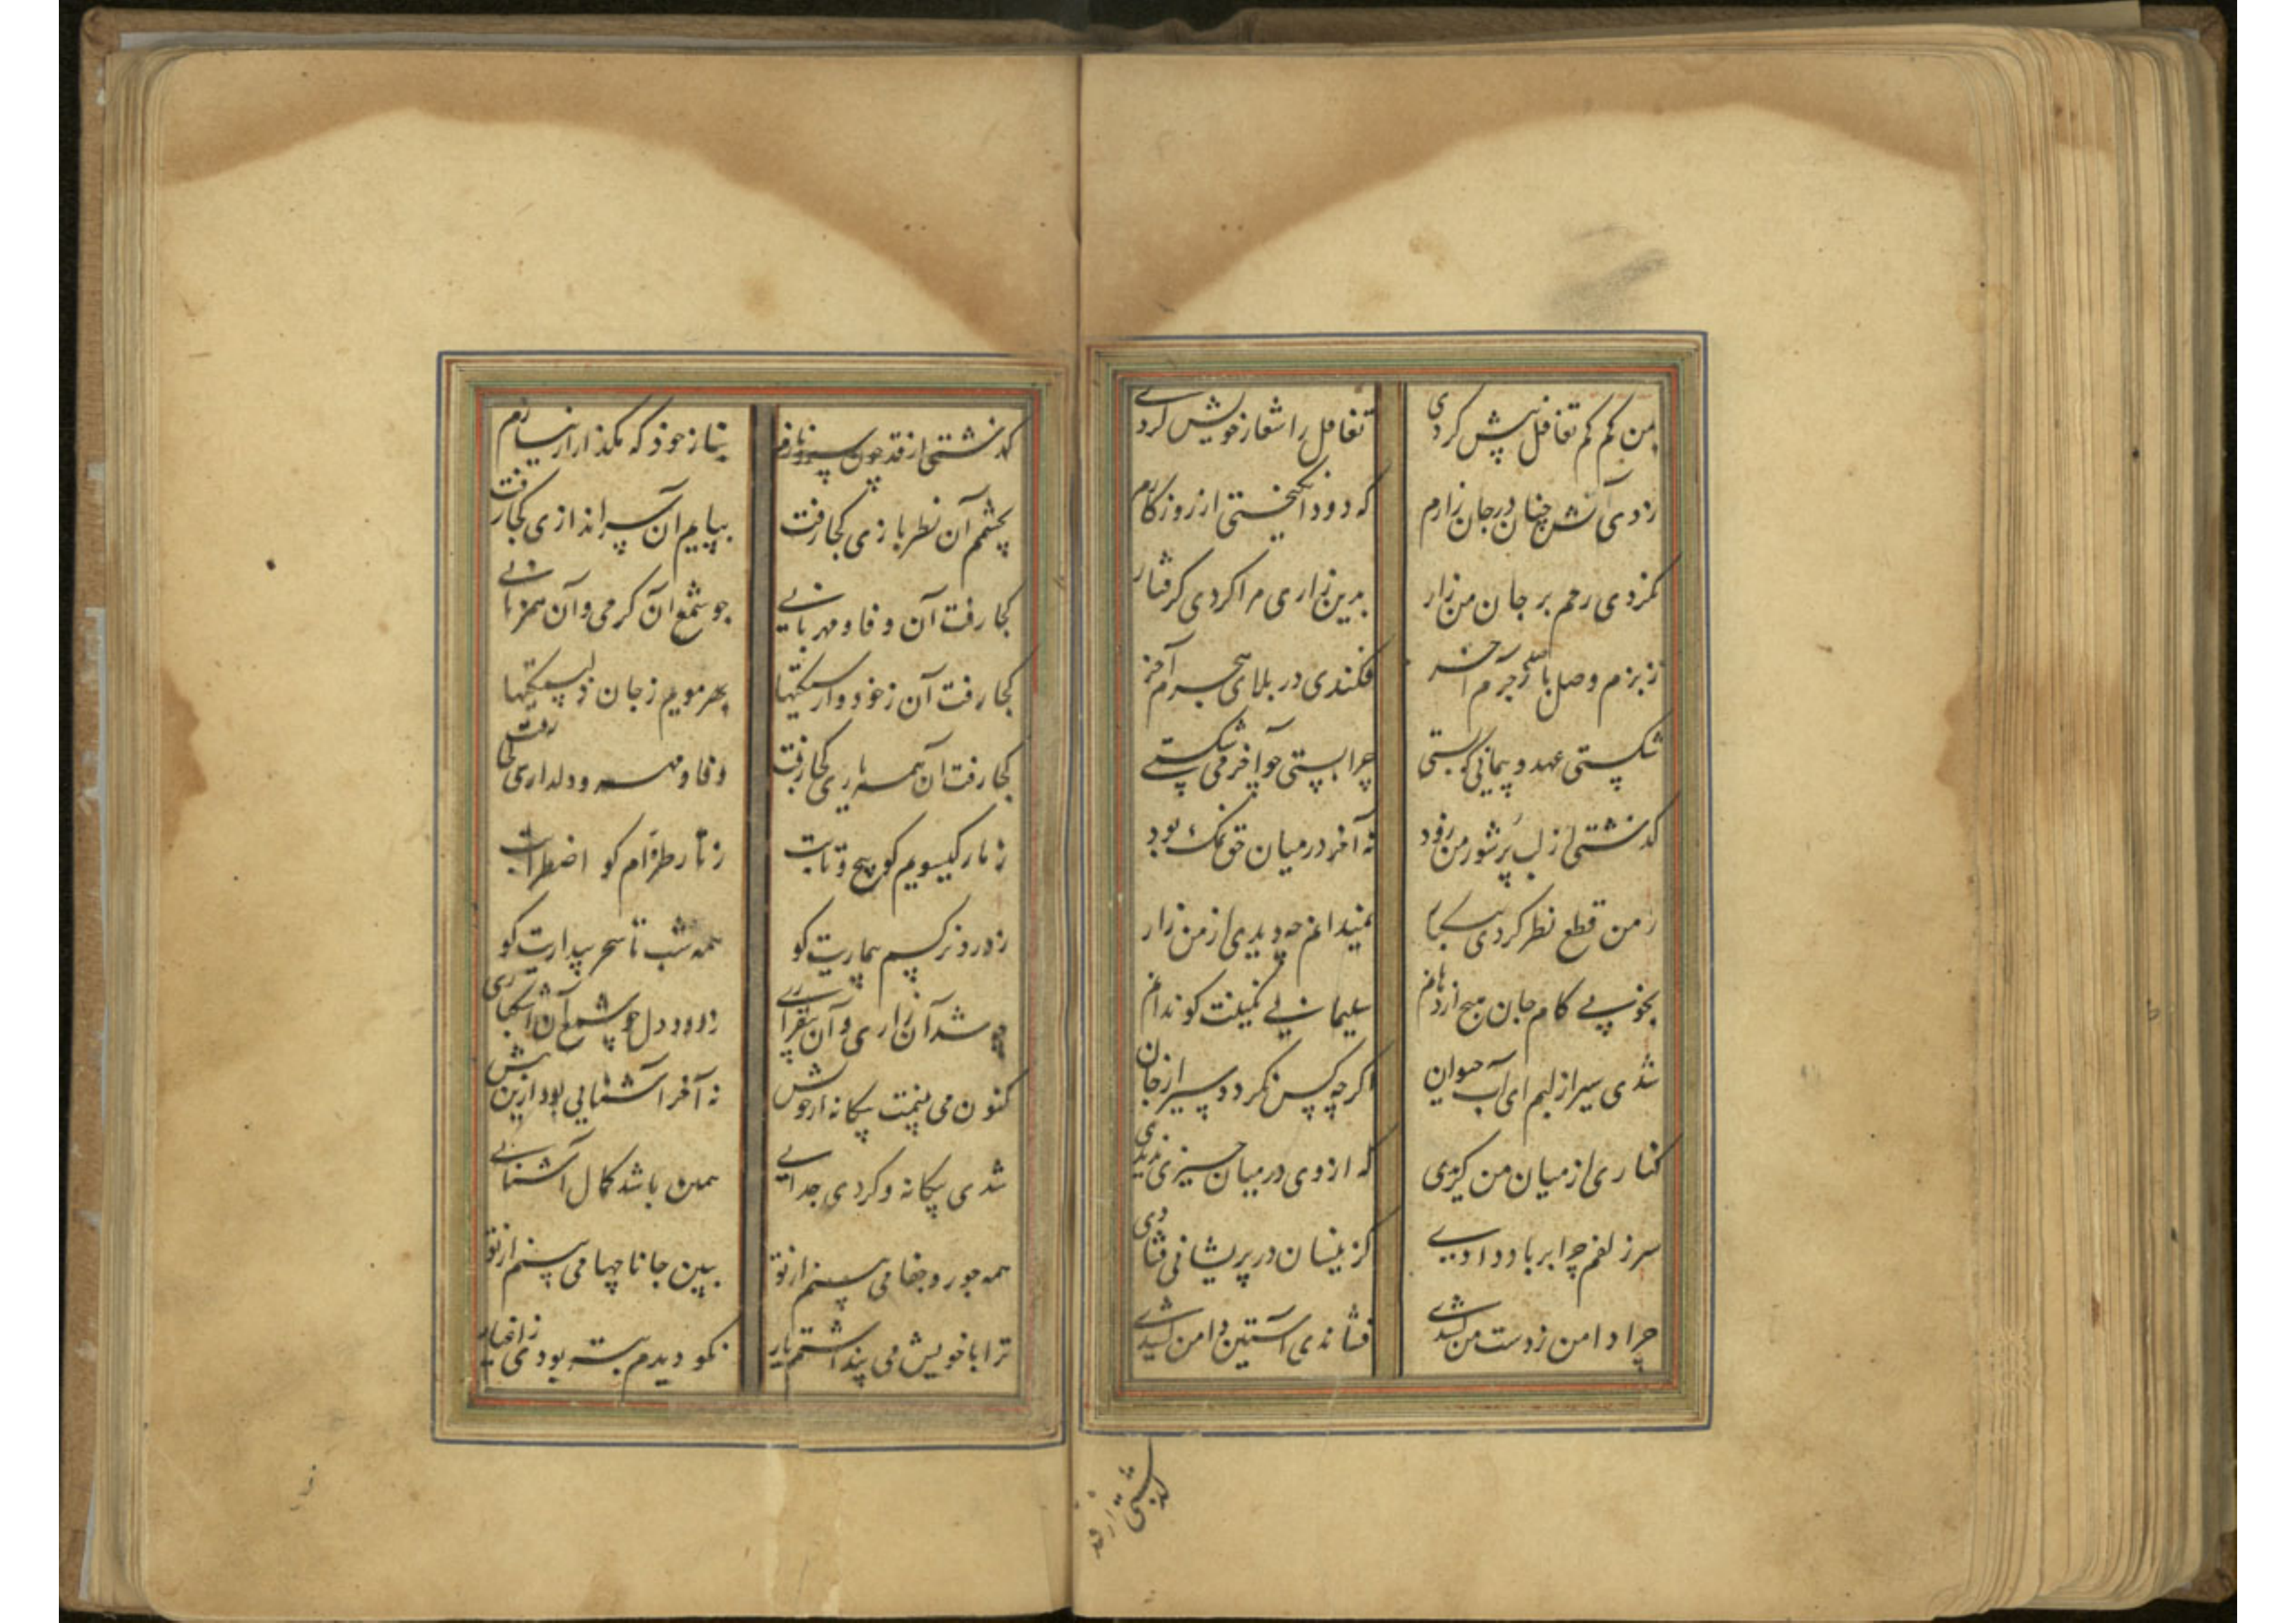 بمن کم کم تغافل پیش کردی تغافل را شعار خویش کردی
زدی آتش چنان در جان زارم که دود انگیختی از روزکارم
نکردی رحم بر جان من زار بدین زاری مرا کردی کرفتار
ز بزم وصل با آخر فکندی در بلای هجرم آخر
شکستی عهد و پیمانی که بستی چرا بستی چو آخر می شکستی
کذشتی از لب پر شور من زود نه آخر در میان حق نمک بود
ز من قطع نظر کردی نمیدانم چه دیدی از من زار
بی کام جان هیچ از دهانم سلیمانی نکینت کو ندانم
شدی سیر از لبم ای آب حیوان اکر چه کس نکردد سیر از جان
کناری از میان من که از وی در میان چیزی ندیدی
سر زلفم چرا بر باد دادی کزینسان در پریشانی فتادی
چرا دامن ز دست من کشیدی فشاندی آستین و دامن کشیدی
کذشتی از قد
کذشتی از قد چون سرو نازم بناز خود که مکذار از نیازم
بچشم آن نظر بازی کجا رفت بپایم آن سر اندازی کجا رفت
کجا رفت آن وفا و مهربانی چو شمع آن کرمی و آن همزبانی
کجا رفت آن ز خود وارستکیها بهر مویم ز جان
کجا رفت آن همه یاری کجا رفت وفا و مهر و دلداری کجا رفت
ز مار کیسویم کو پیچ و تابت ز تار طره‌ام کو اضطرابت
ز درد نرکسم بیماریت کو همه شب تا سحر بیداریت کو
چه شد آن زاری و آن بیقراری ز دود دل چو شمع آن اشکباری
کنون می بینمت بیکانه از خویش نه آخر آشنایی بود ازین پیش
شدی بیکانه و کردی جدایی همین باشد کمال آشنایی
همه جور و جفا می بینم از تو ببین جانا چها می بینم از تو
ترا با خویش می پنداشتم یار نکو دیدم بودی ز اغیار